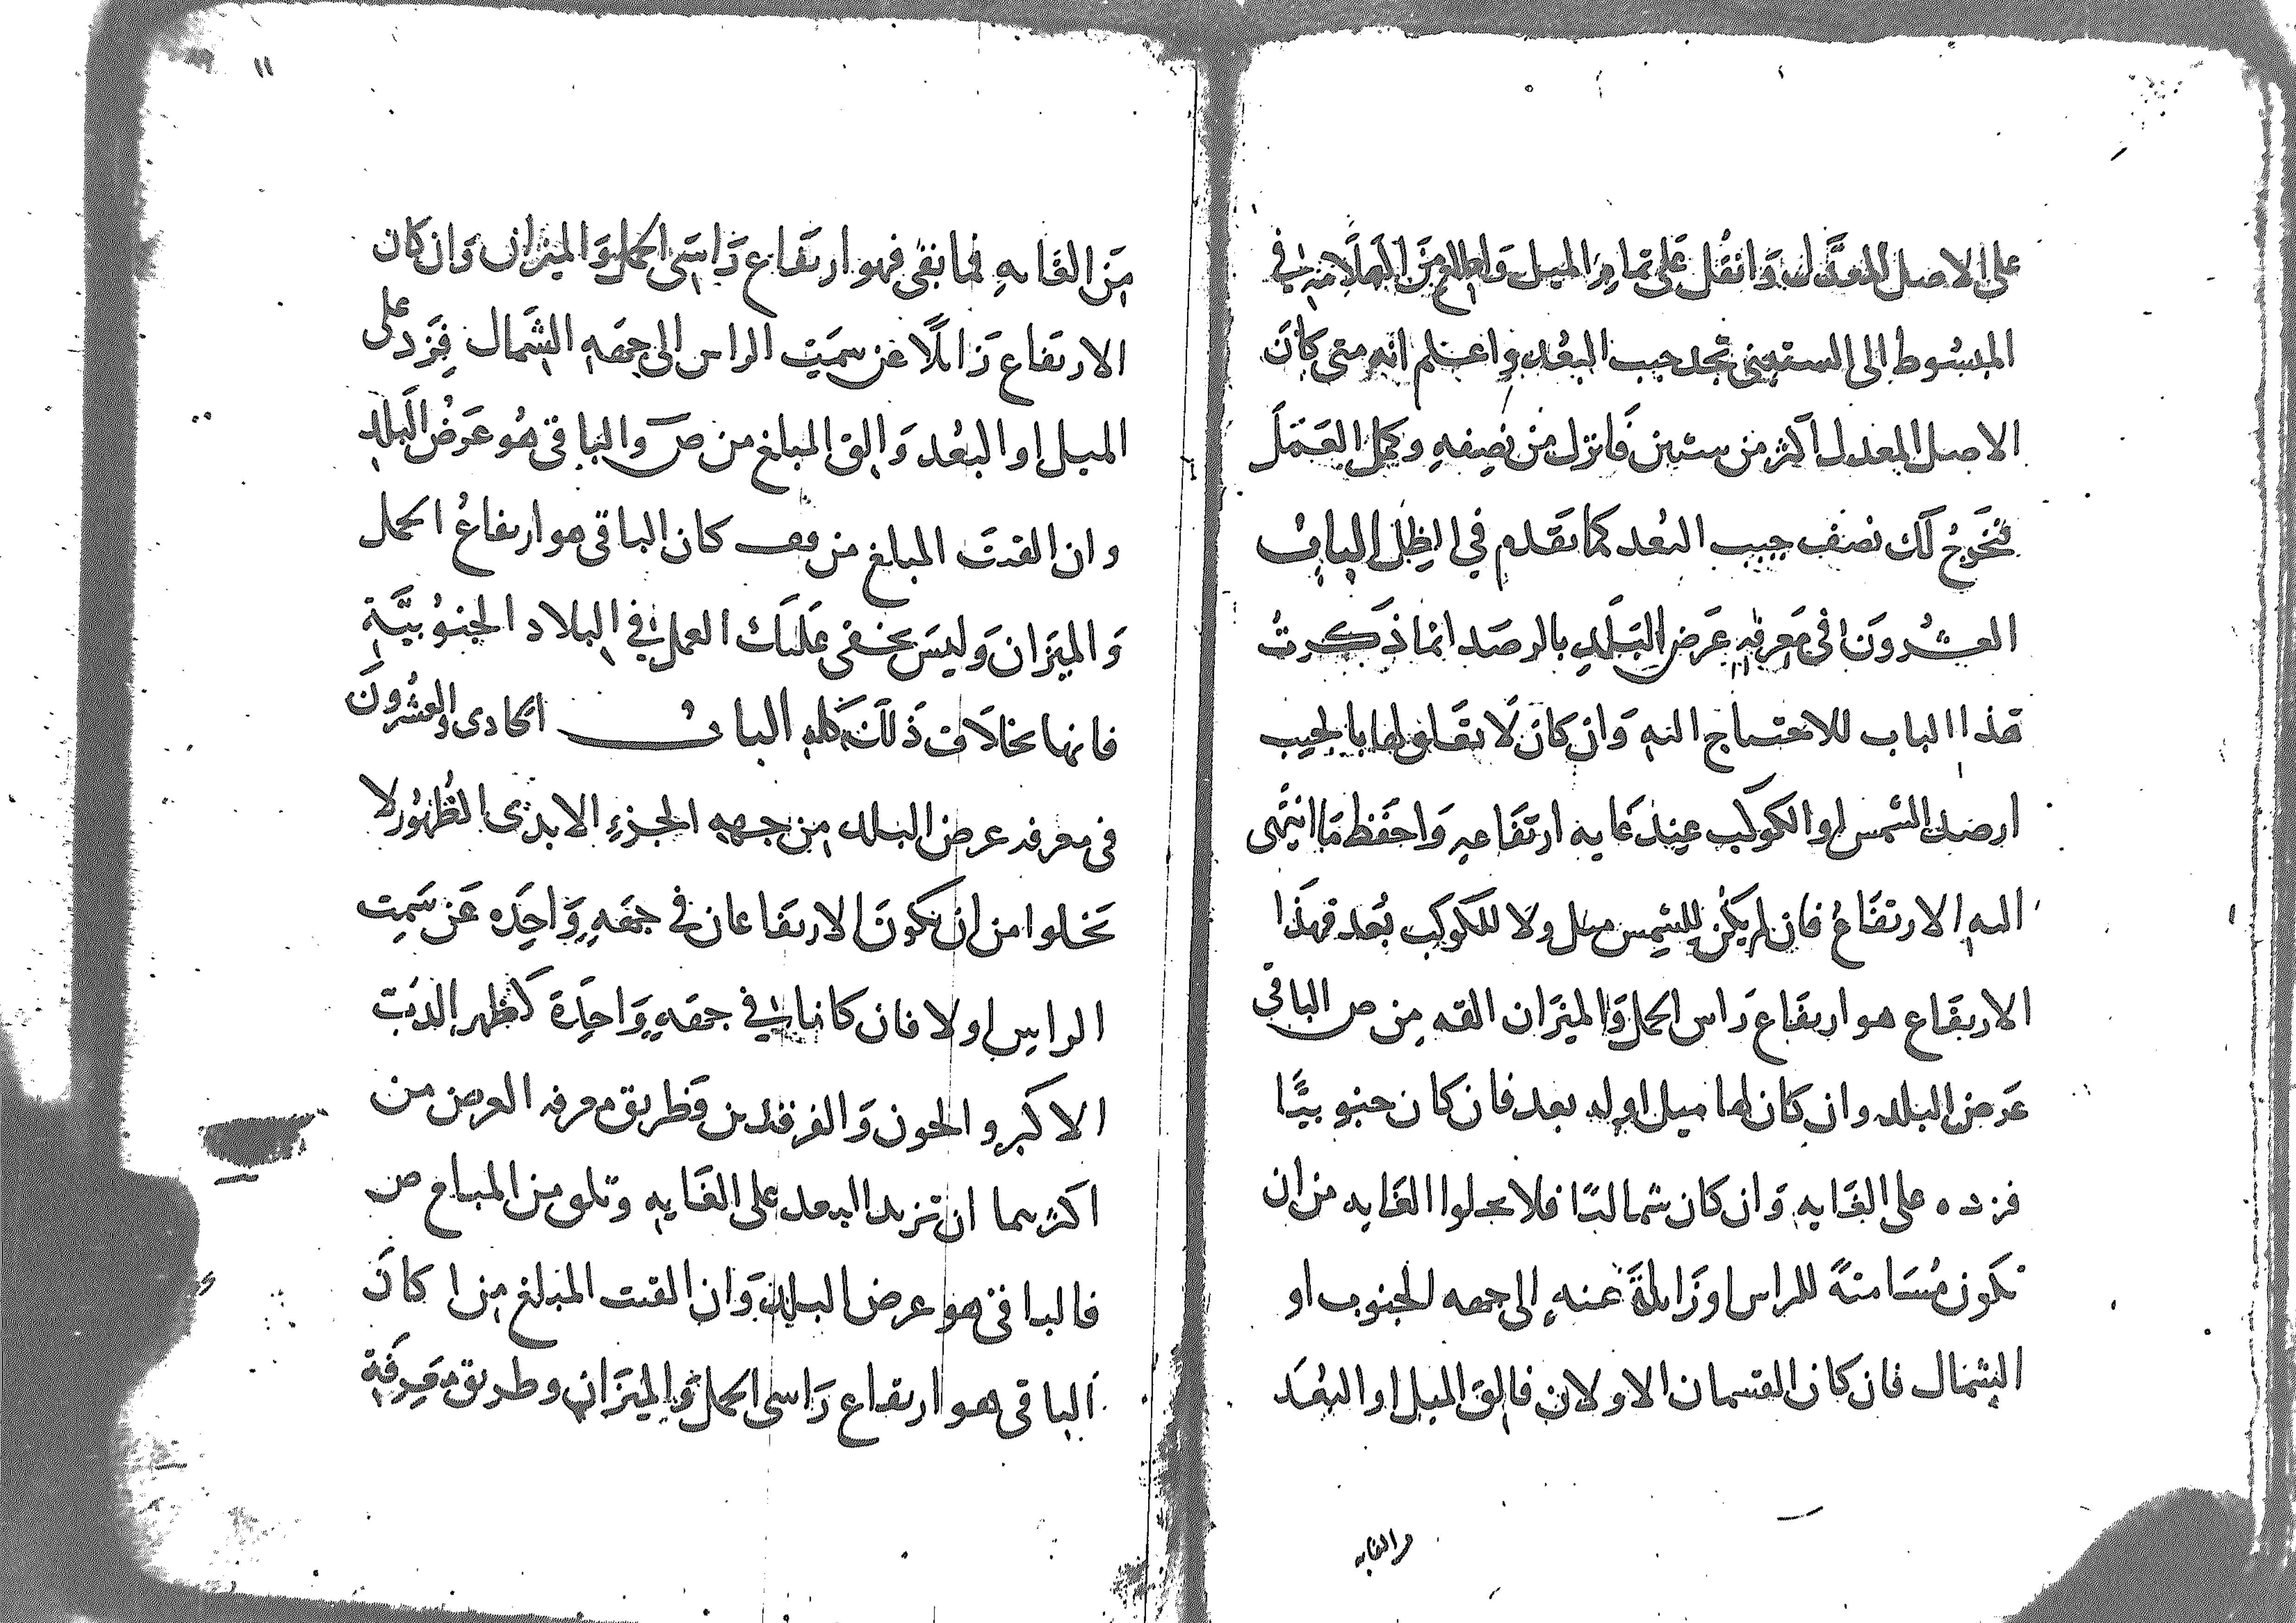 على الاصل المعدل وانقل على تمام الميل واطلع من العلامة في
المبسوط الى الستيني تجد جيب البعد واعلم انه متى كان
الاصل المعدل اكثر من ستين فانزل من نصفه وكمل العمل
يخرج لك نصف جيب البعد كما تقدم في الظل الباب
العشرون في معرفه عرض البلد بالرصد انما ذكرت
هذا الباب للاحتياج اليه وان كان لا تعلق لها بالجيب
ارصد الشمس او الكوكب عند غايه ارتفاعه واحفظ ما انتهى
اليه الارتفاع فان لم يكن للشمس ميل ولا للكوكب بعد فهذا
الارتفاع هو ارتفاع راس الحمل والميزان القه من ص الباقي
عرض البلد وان كان لها ميل او له بعد فان كان جنوبيا
فزده على الغايه وان كان شماليا فلا يخلوا الغايه من ان
تكون مسامته للراس او زايلة عنه الى جهه الجنوب او
الشمال فان كان القسمان الاولان فالق الميل او البعد
من الغايه
١١
من الغايه فما بقى فهو ارتفاع راسى الحمل والميزان وان كان
الارتفاع زايلا عن سمت الراس الى جهه الشمال فزد على
الميل او البعد والق المبلغ من ص والباقى هو عرض البلد
وان القيت المبلغ من قف كان الباقى هو ارتفاع الحمل
والميزان وليس يخفى عليك العمل في البلاد الجنوبية
فانها بخلاف ذلك كله الباب الحادى والعشرون
فى معرفه عرض البلد من جهه الجزء الابدى الظهور لا
تخلوا من ان تكون الارتفاعان في جهه واحده عن سمت
الراس او لا فان كانا في جهه واحدة كظهر الدب
الاكبر والجون والفرقدين فطريق معرفه العرض من
اكثرهما ان تزيد البعد على الغايه وتلقى من المبلغ ص
فالباقى هو عرض البلد وان القيت المبلغ من ا كان
الباقى هو ارتفاع راسى الحمل والميزان وطريق معرفة